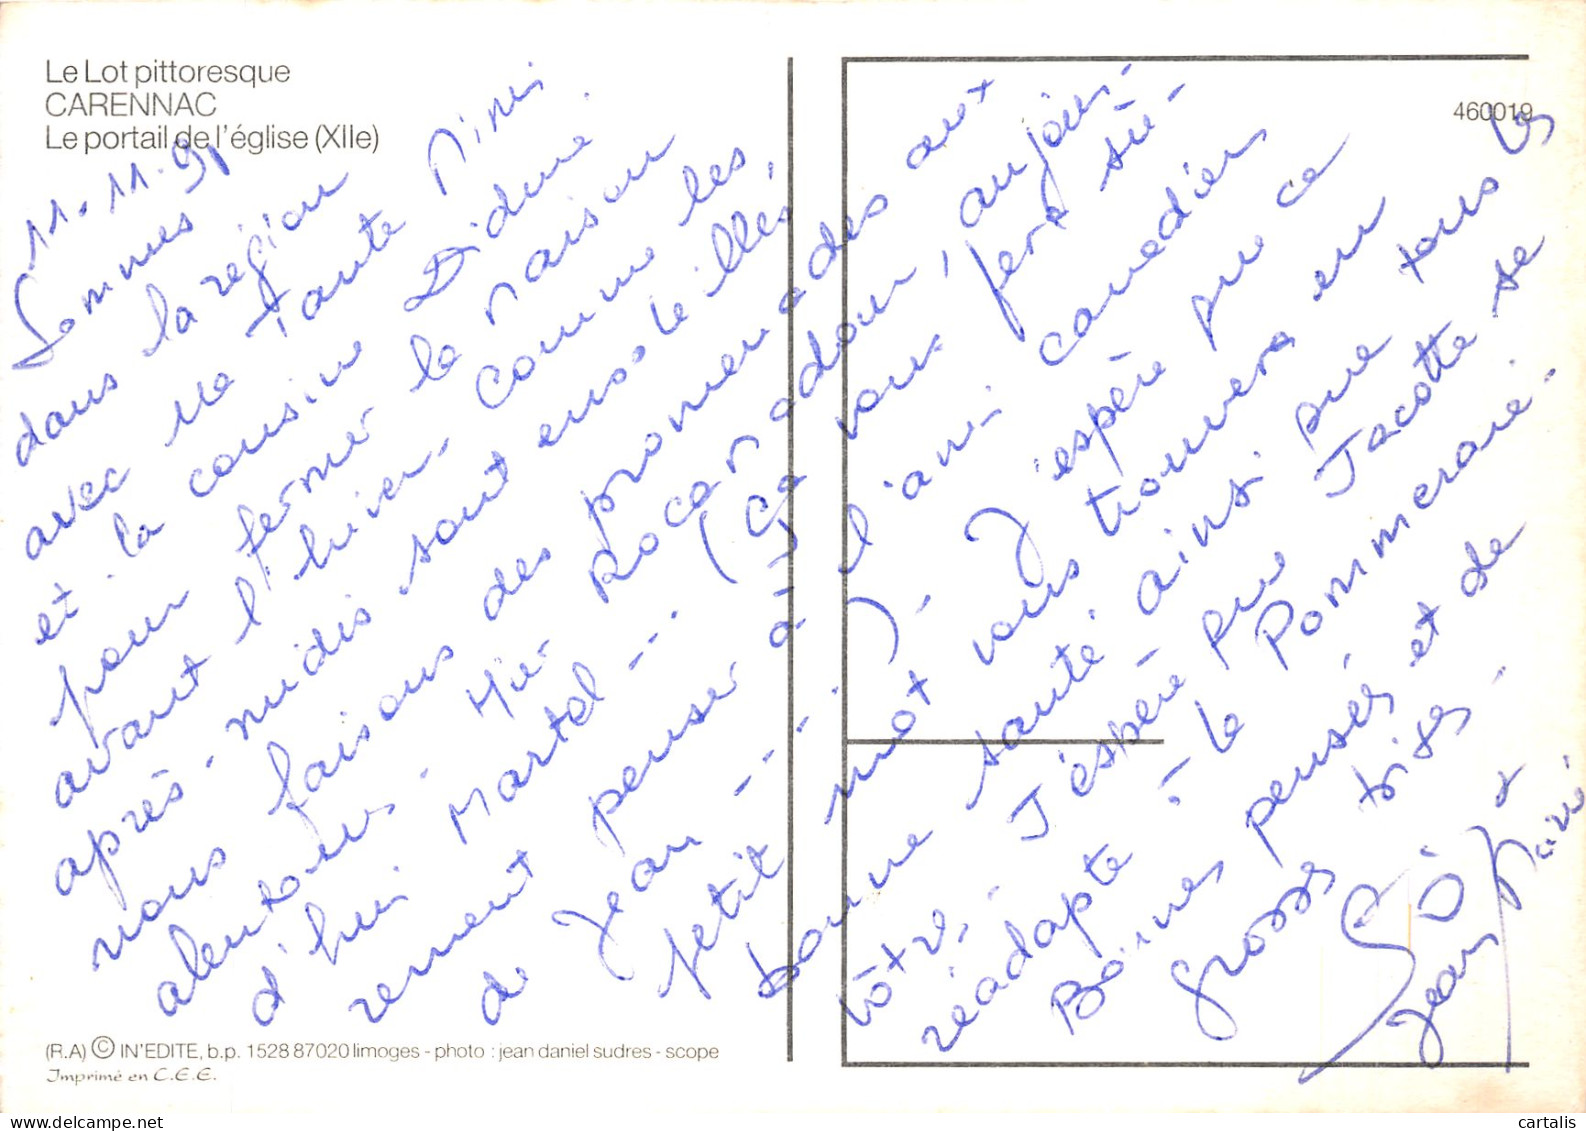 Le Lot pittoresque
CARENNAC
Le portail de l'église (XIIe)
460019
11.11.91
Sommes
dans la région
avec ma Tante Mimi
et la cousine Didine.
pour fermer la maison
avant l'hiver. Comme les
après-midis sont ensoleillés,
nous faisons des promenades aux
alentours. Hier Rocamadour, aujour-
d'hui Martel --- (Ça vous fera sû-
rement penser à l'ami canadien
de Jean ---!). J'espère que ce
petit mot vous trouvera en
bonne santé ainsi que tous les
vôtres. J'espère que Jacotte se
réadapte à la Pommeraie.
Bonnes pensées et de
grosses bises.
Jean
(R.A) © IN'EDITE, b.p. 1528 87020 limoges - photo : jean daniel sudres - scope
Imprimé en C.E.E.
cartalis